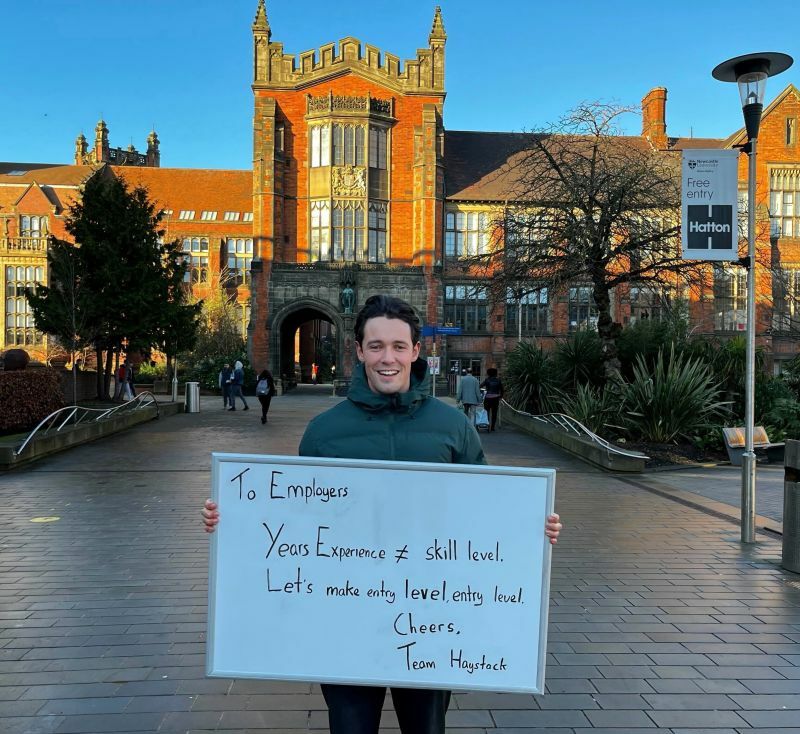 To Employers
Years Experience ≠ skill level.
Let's make entry level, entry level.
Cheers,
Team Haystack
Newcastle
University
Free
entry
Hatton